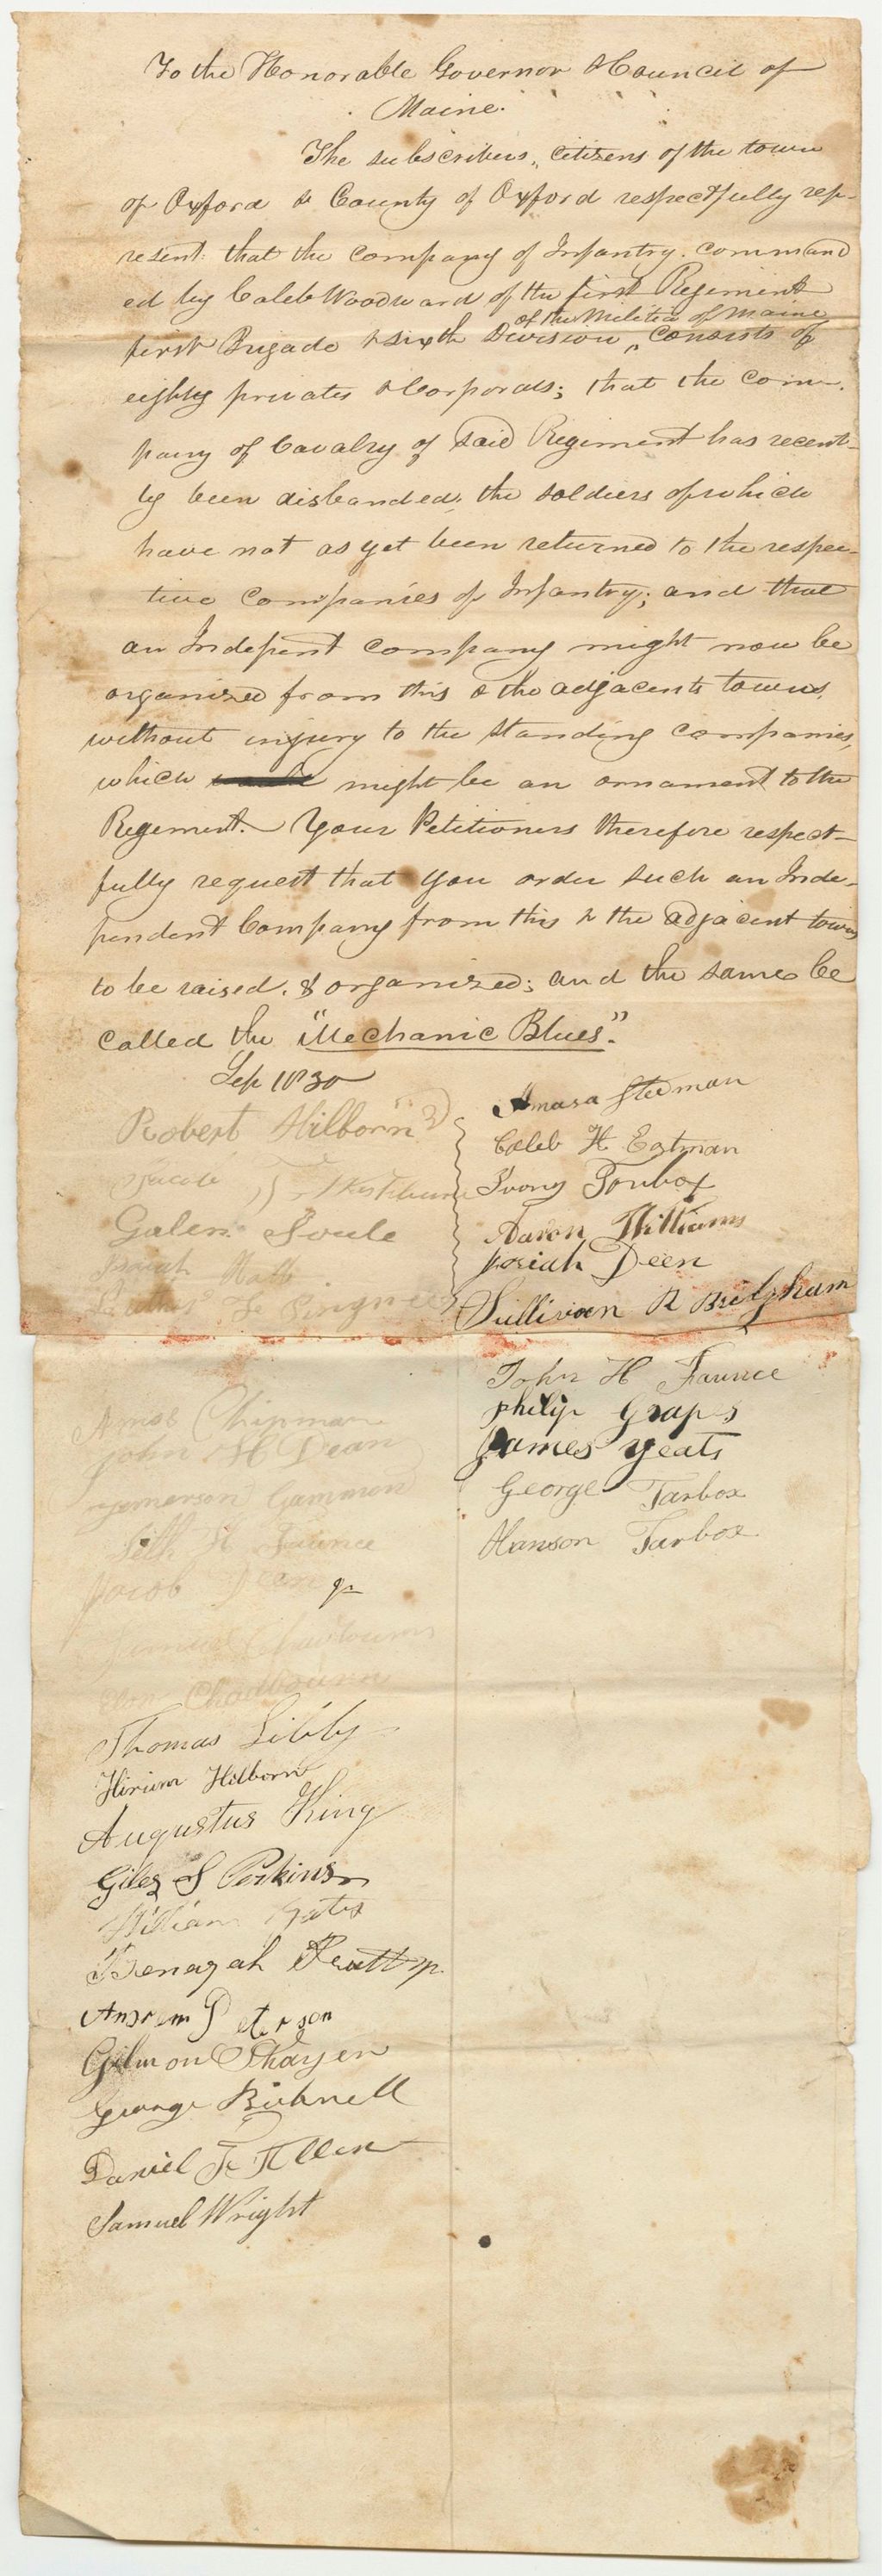 To the Honorable Governor & Council of
Maine.
The subscribers, citizens of the town
of Oxford & County of Oxford respectfully rep-
resent: that the company of Infantry. command
ed by Caleb Woodward of the first Regiment
of the Militia of Maine
first Brigade & sixth Division ‸ consists of
eighty privates & Corporals; that the com-
pany of Cavalry of said Regiment has recent-
ly been disbanded, the soldiers of which
have not as yet been returned to the respec-
tive companies of Infantry; and that
an Indepent company might now be
organized from this & the adjacents towns,
without injury to the standing companies,
which might be an ornament to the
Regiment. Your Petitioners therefore respect-
fully request that you order such an Inde-
pendent Company from this & the adjacent towns
to be raised. & organized; and the same be
called the "Mechanic Blues".
Sep 1830
Robert Hilborn
Jacob
Galen Soule
Hall
Luther
Amos Chipman
John H Dean
Gammon
Seth Faunce
Jacob Deen Jr
Samuel Chadbourn
Chadbourn
Thomas Libby
Hirium Hilborn
Augustus King
Giles S Perkins
William
Benazah Pratt Jr.
Ansrem Peterson
Gilmon Thayer
George Bicknell
Daniel F Allen
Samuel Wright
Amasa Stedman
Caleb H Eastman
Aaron Williams
Josiah Deen
Sullivan R Bridgham
John H Faunce
Philip
James Yeats
George Tarbox
Hanson Tarbox